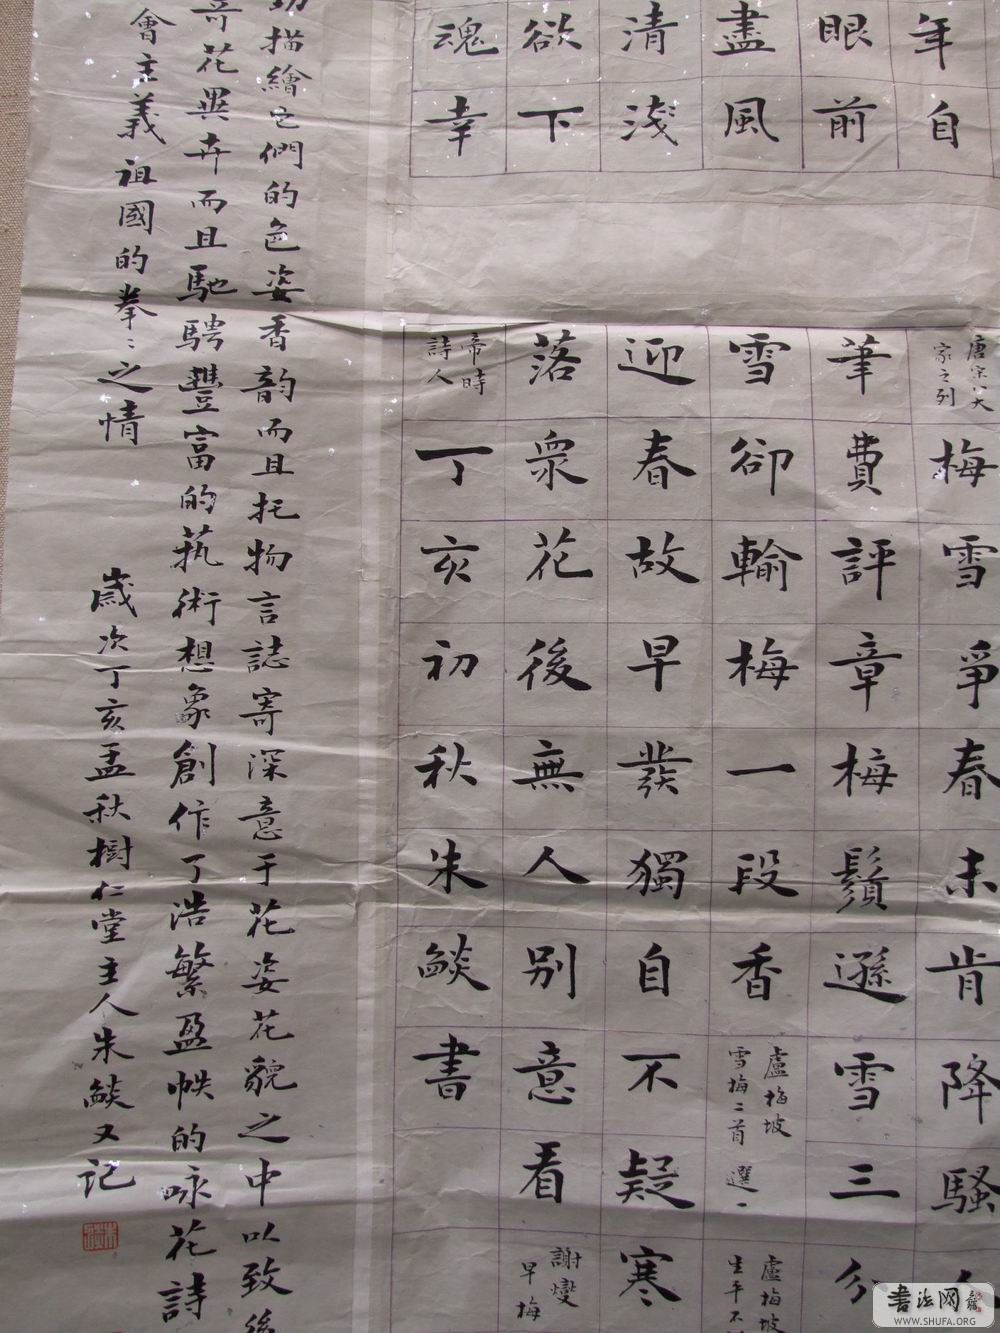 年自
眼前
盡風
清淺
欲下
魂幸
唐宋八大
家之列
梅雪爭春未肯降騷人
筆費評章梅鬚遜雪三分
雪卻輸梅一段香
盧梅坡
雪梅二首選一
盧梅坡
生平不
迎春故早發獨自不疑寒
落衆花後無人別意看
謝燮
早梅
帝時
詩人
丁亥初秋朱燄書
描繪它們的色姿香韵而且托物言誌寄深意于花姿花貌之中以致後
奇花異卉而且馳騁豐富的執術想象創作了浩繁盈帙的咏花詩
會主義祖國的拳〻之情
歲次丁亥孟秋樹仁堂主人朱燄又记
书法网
WWW.SHUFA.ORG